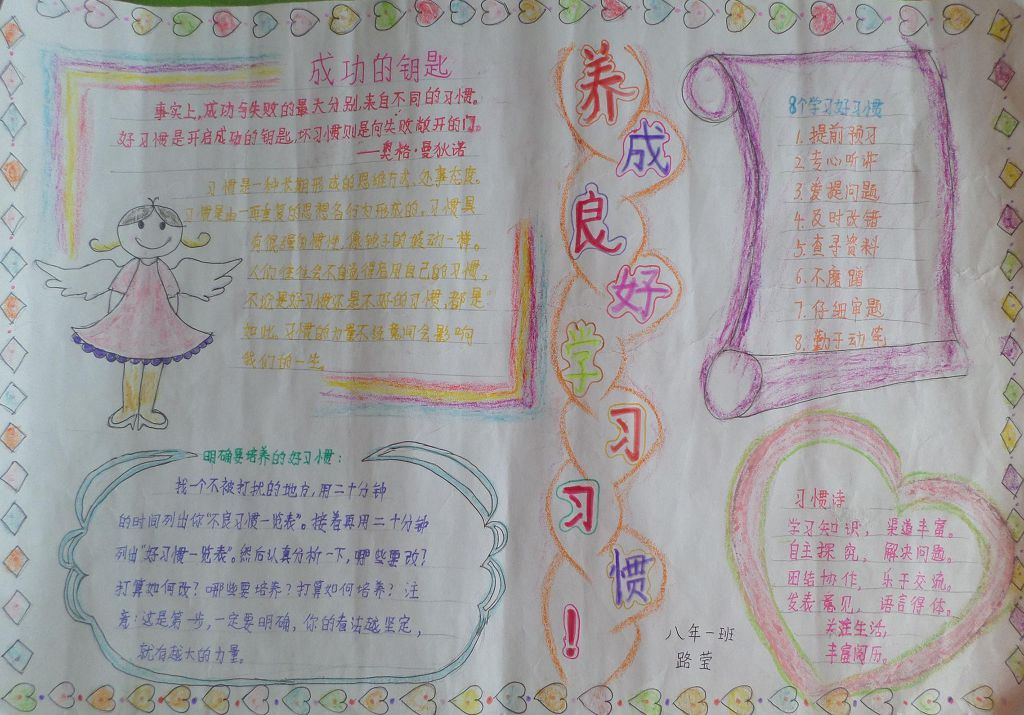 养成良好学习习惯！
成功的钥匙
事实上,成功与失败的最大分别,来自不同的习惯。
好习惯是开启成功的钥匙,坏习惯则是向失败敞开的门。
——奥格·曼狄诺
习惯是一种长期形成的思维方式、处事态度。
习惯是由一再重复的思想行为形成的。习惯具
有很强的惯性,像轮子的转动一样。
人们往往会不自觉得启用自己的习惯,
不论是好习惯还是不好的习惯,都是
如此。习惯的力量不经意间会影响
我们的一生。
明确要培养的好习惯:
找一个不被打扰的地方,用二十分钟
的时间列出你"不良习惯一览表"。接着再用二十分钟
列出"好习惯一览表"。然后认真分析一下,哪些要改?
打算如何改?哪些要培养?打算如何培养?注
意:这是第一步,一定要明确,你的看法越坚定,
就有越大的力量。
8个学习好习惯
1.提前预习
2.专心听讲
3.爱提问题
4.及时改错
5.查寻资料
6.不磨蹭
7.仔细审题
8.勤于动笔
习惯诗
学习知识,渠道丰富。
自主探究,解决问题。
团结协作,乐于交流。
发表意见,语言得体。
关注生活,
丰富阅历。
八年一班
路莹